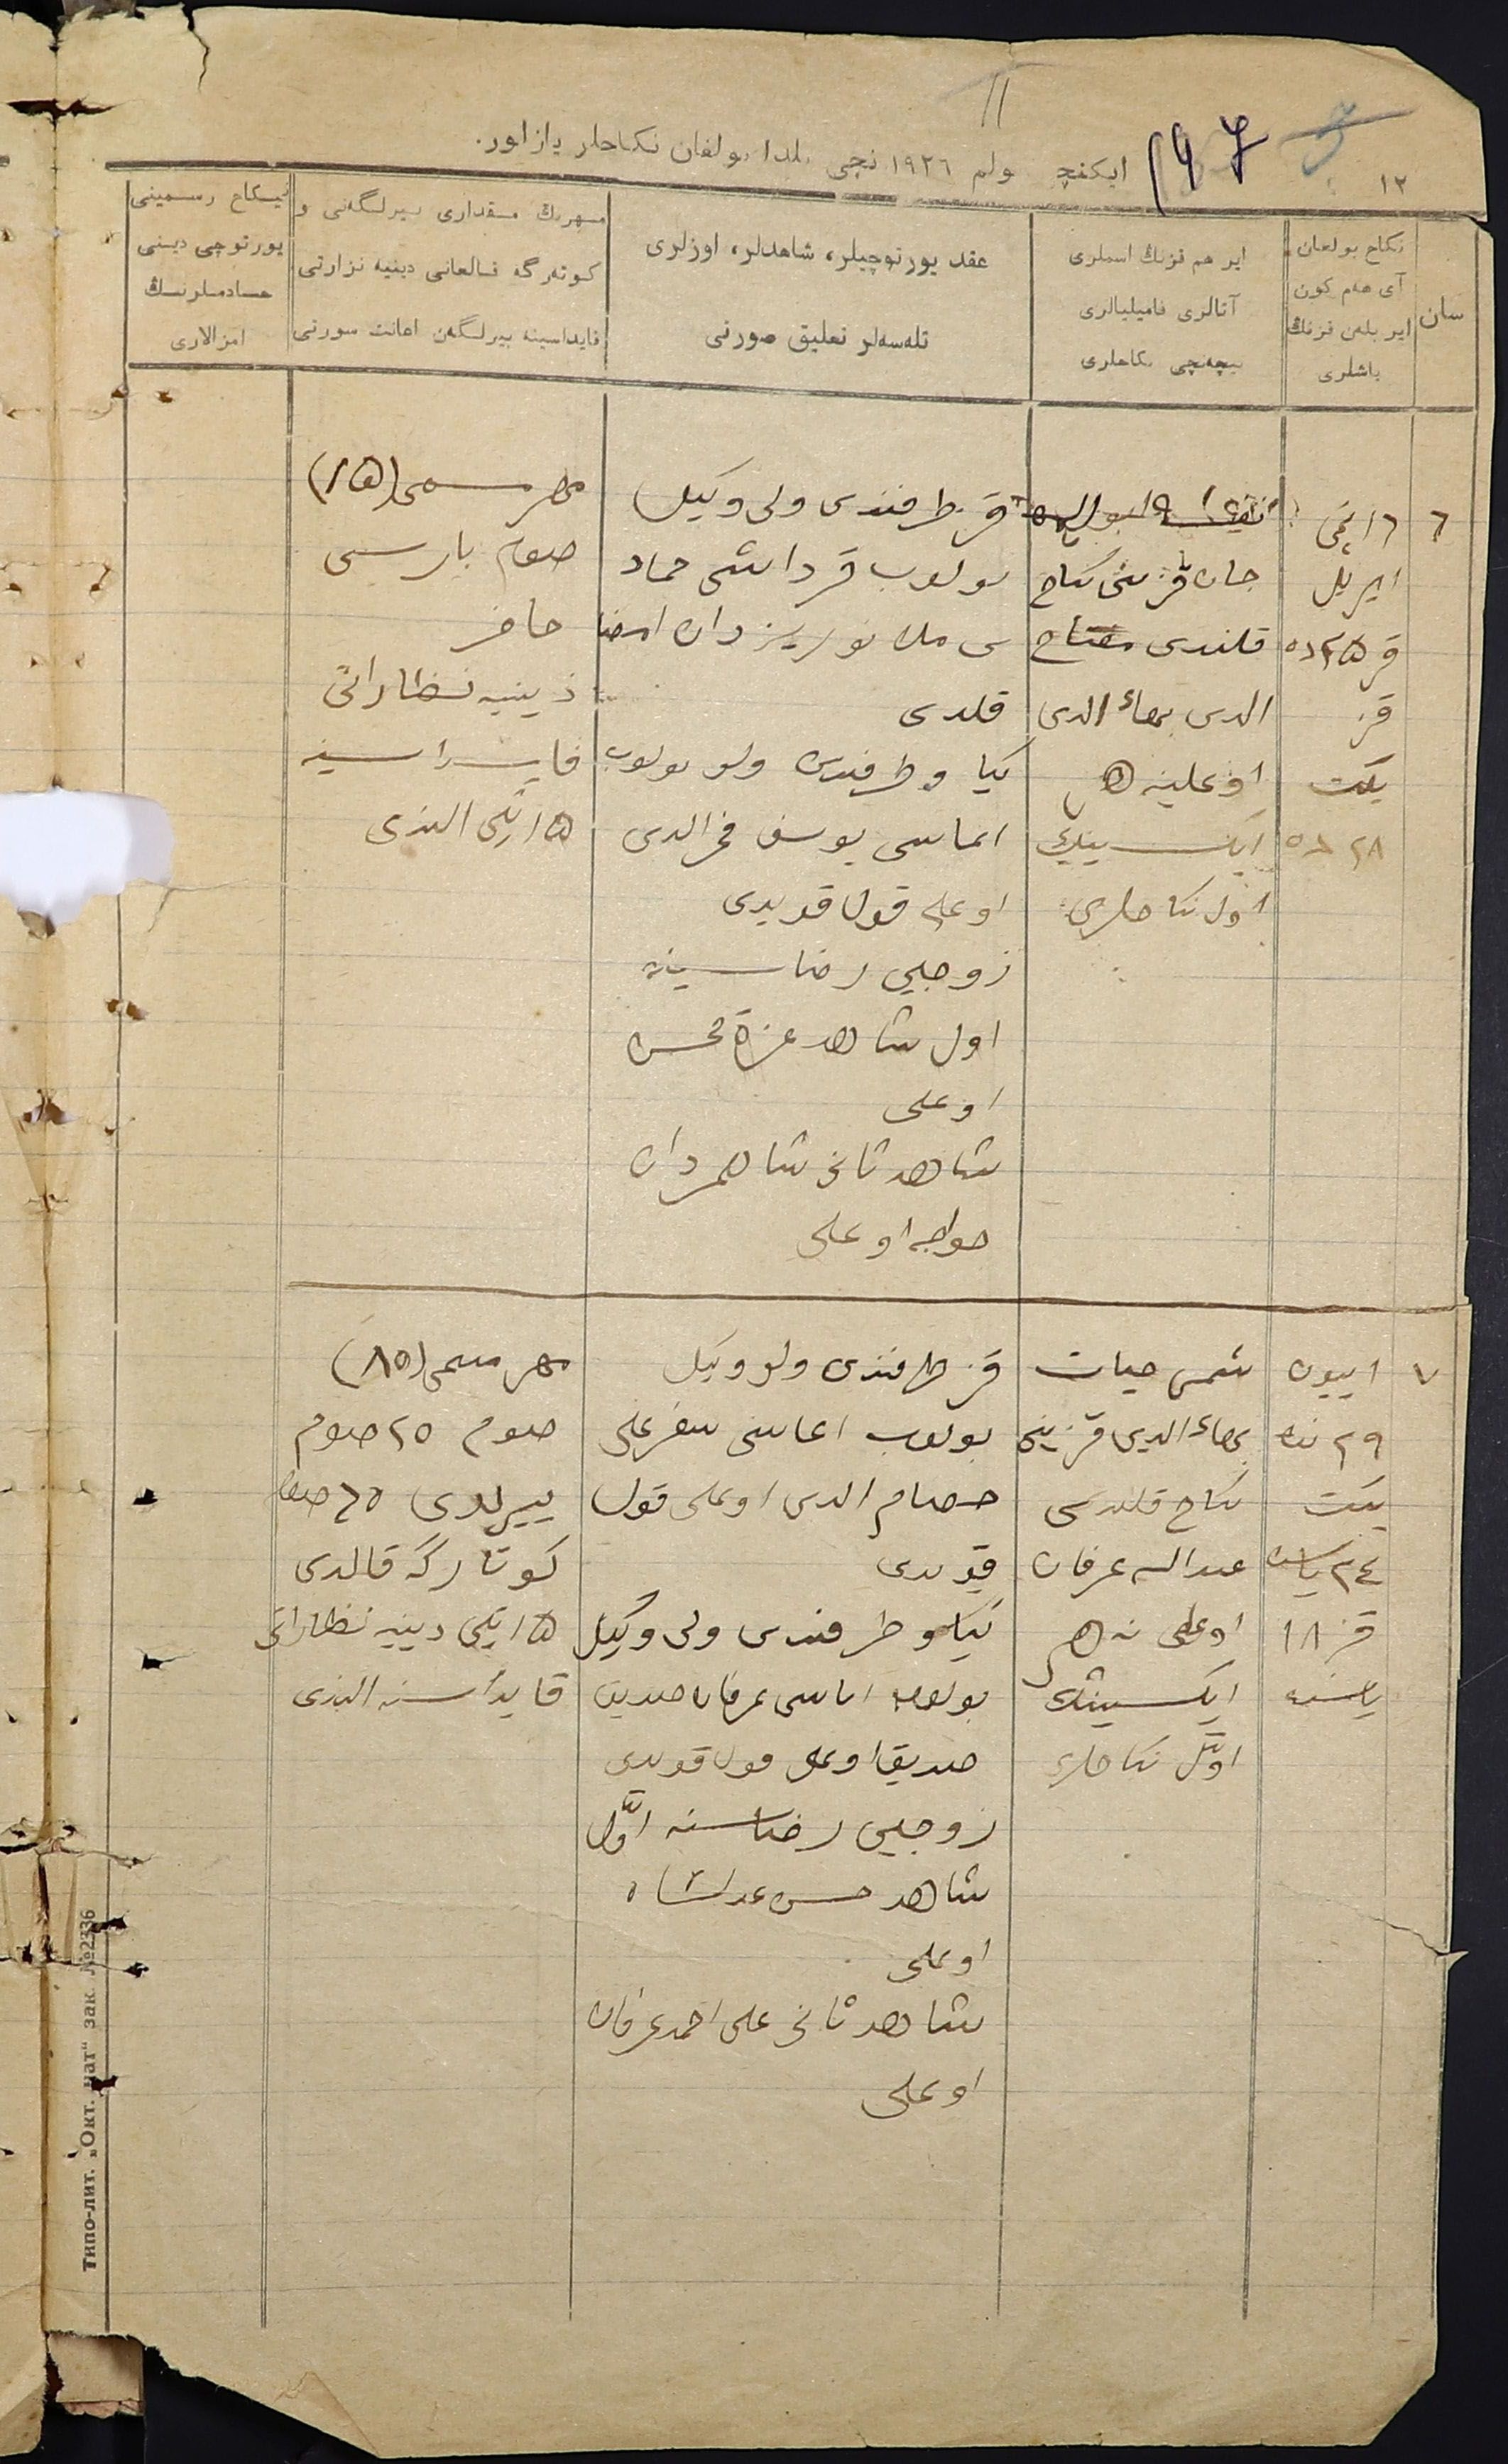 11
197
١٢
ایکنچی بولم ١٩٢٦ نچی یلدا بولغان نکاحلر یازلور.
سان
نکاح بولغان
آی هەم کون
ایر بلەن قزنڭ
یاشلری
ایر هم قزنڭ اسملری
آتالری فامیلیالری
نیچەنچی نکاحلری
عقد یورتوچیلر، شاهدلر، اوزلری
تلەسەلر تعلیق صورتی
مهرنڭ مقداری بیرلگەنی و
کوتەرگە قالغانی دینیە نزارتی
فایداسینە بیرلگەن اعانت سورتی
نیکاح رسمینی
یورتوچی دینی
خادملرنڭ
امزالاری
٦
١٦ نچی
اپریل
قز ٢٥ دە
قز
یکت
٢٨ دە
جان قزینی نکاح
قلندی مفتاح
الدین بهاء الدین
اوغلینە هم
ایکسینڭ
اول نکاحلری
قز طرفندن ولی وکیل
بولوب قرداشی حماد
قلدی
کیاو طرفندن ولی بولوب
اتاسی یوسف فخرالدین
اوغلی قول قویدی
زوجین رضاسینە
اول شاهد عزة محسن
اوغلی
شاهد ثانی شاهمردان
خواجە اوغلی
مهر مسمی (١٥)
صوم بارسی
حاضر
دینیە نظاراتی
فایداسینە
١٥ تین الندی
٧
١ ییون
٢٩ ندە
یکت
٢٤ یاشندە
قز ١٨
یاشندە
شمس حیات
بهاء الدین قزینی
نکاح قلندی
عبدالله عرفان
اوغلی نە هم
ایکسینڭ
اوّل نکاحلری
قز طرفندن ولی وکیل
بولوب اغاسی سفرعلی
حسام الدین اوغلی قول
قویدی
کیاو طرفندن ولی وکیل
بولوب اتاسی عرفان صدیق
صدیق اوغلی قول قویدی
زوجین رضاسنە اوّل
شاهد حسن عدلشاه
اوغلی
شاهد ثانی علی احمد عرفان
اوغلی
مهر مسمی (٨٥)
صوم ٢٥ صوم
بیرلدی ٦٥ صوم
کوتارگە قالدی
١٥ تین دینیە نظاراتی
فایداسنە الندی
Типо-лит. „Окт. нат“ зак №2336